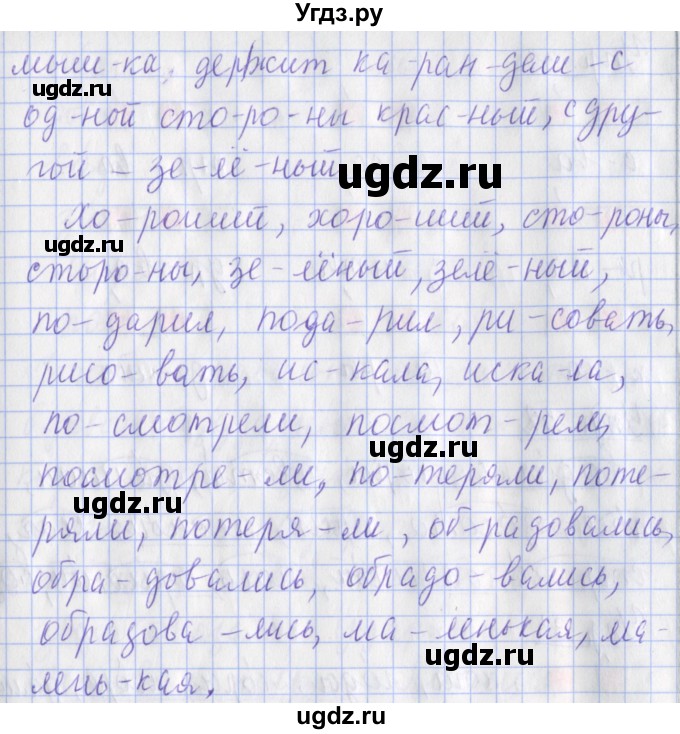 Угдз.ру
мыш-ка, держит ка-ран-даш - с
од-ной сто-ро-ны крас-ный, с дру-
гой - зе-лё-ный
ugdz.ru
ugdz.ru
Хо-роший, хоро-ший, сто-роны,
ugdz.ru
сторо-ны, зе-лёный, зелё-ный,
по-дарил, пода-рил, ри-совать,
ugdz.ru
рисо-вать, ис-кала, иска-ла,
по-смотрели, посмот-рели,
ugdz.ru
посмотре-ли, по-теряли, поте-
ugdz.ru
ряли, потеря-ли, об-радовались,
ugdz.ru
обра-довались, обрадо-вались,
обрадова-лись, ма-ленькая, ма-
ugdz.ru
лень-кая.
ugdz.ru